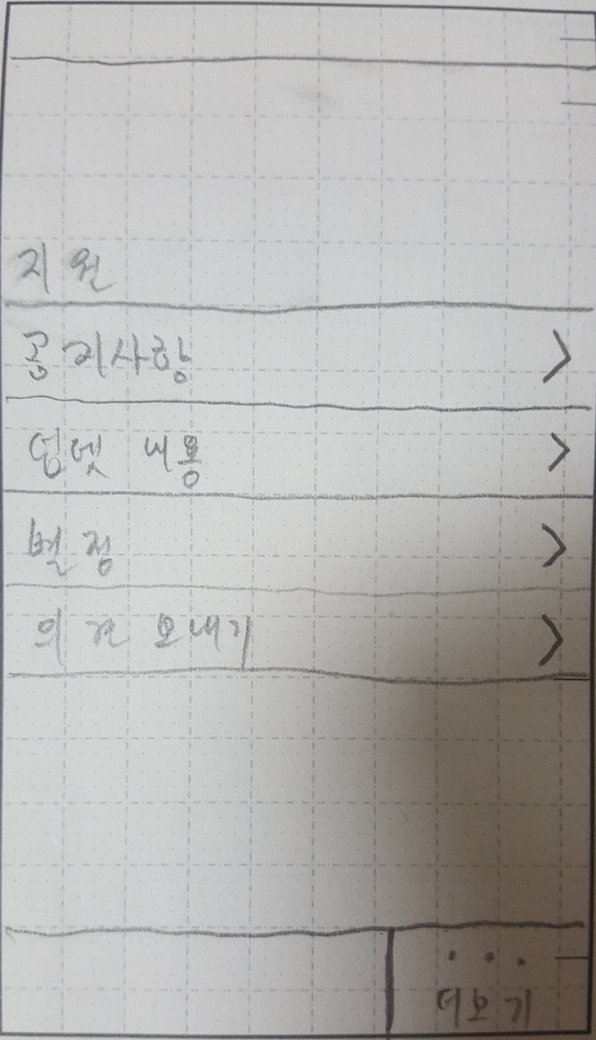 지원
공지사항
업뎃 내용
별점
의견 보내기
더보기